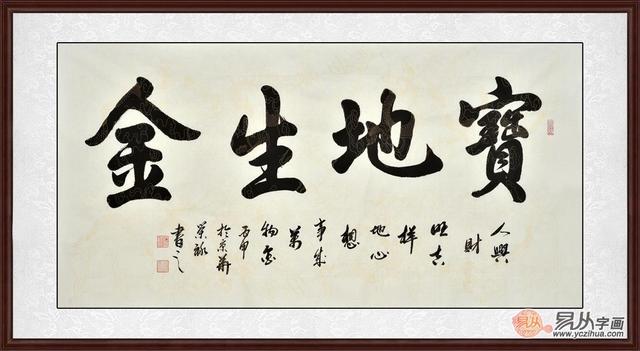 寶地生金
人興
財
旺吉
祥
地心
想
事成
萬
物金
丙申
於京華
書之
易从
易从字画
www.yczihua.com